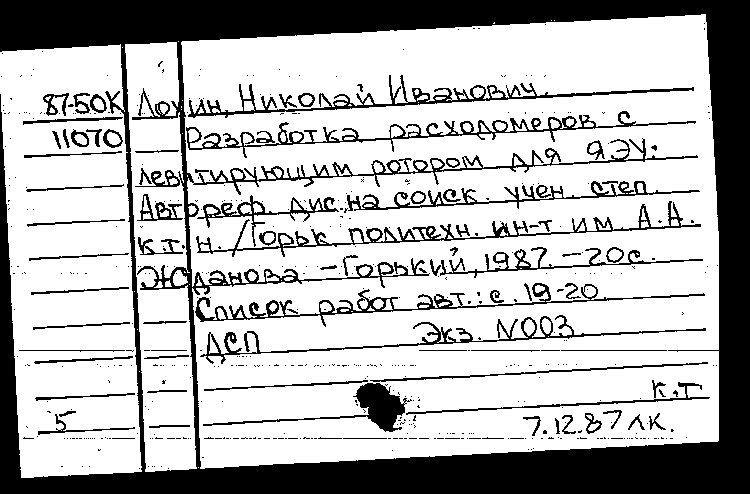 87-50К Лохин, Николай Иванович.
11070 Разработка расходомеров с
левитирующим ротором для ЯЭУ:
Автореф. дис. на соиск. учен. степ.
к.т.н. /Горьк. политехн. ин-т им. А.А.
Жданова. -Горький, 1987. -20с.
Список работ авт.: с. 19-20.
ДСП Экз. N003
К.Т
5 7.12.87 ЛК.